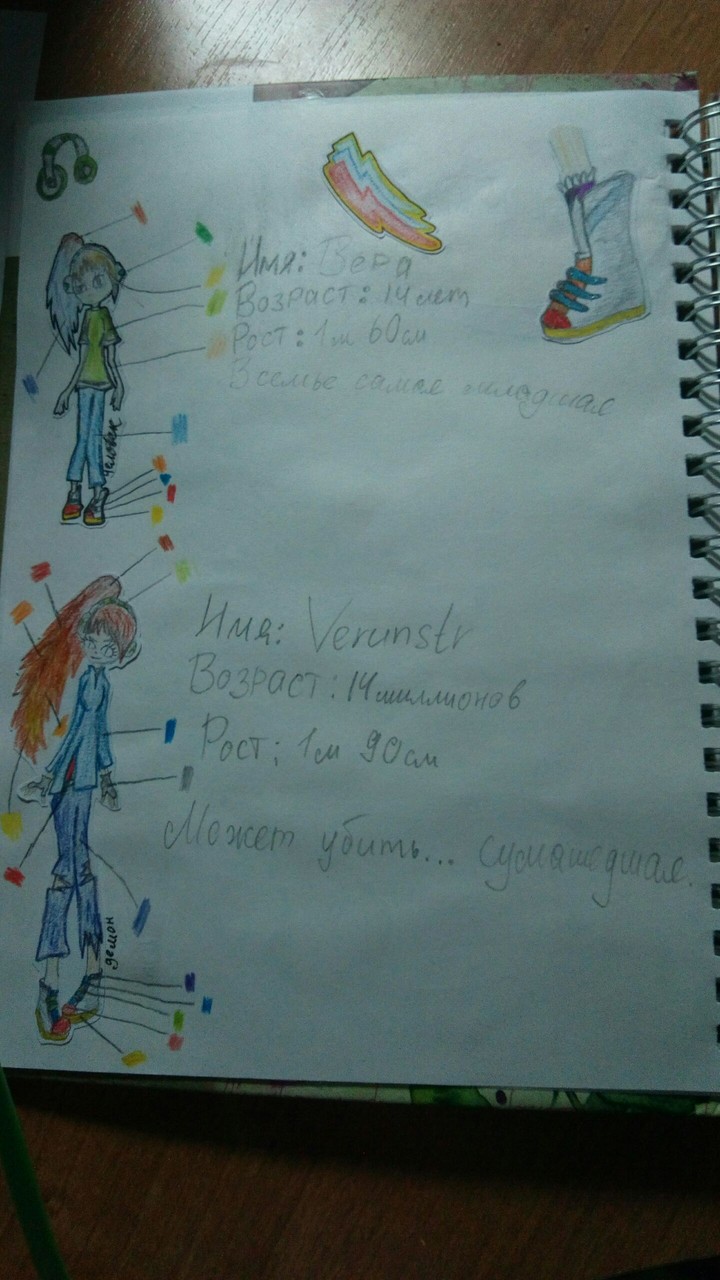 Имя: Вера
Возраст: 14 лет
Рост: 1м 60см
В семье самая младшая
человек
Имя: Verunstr
Возраст: 14 миллионов
Рост; 1м 90см
Может убить... сумашедшая.
демон